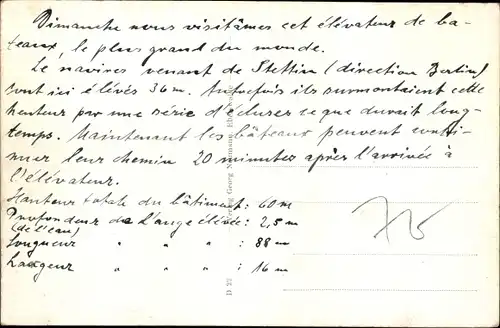 Dimanche nous visitâmes cet élévateur de ba-
teaux, le plus grand du monde.
Le navires venant de Stettin (direction Berlin)
sont ici élévés 36 m. Autrefois ils surmontaient cette
hauteur par une série d'écluses ce que durait long-
temps. Maintenant les bâteaux peuvent conti-
nuer leur chemin 20 minutes après l'arrivée à
l'élévateur.
Hauteur totale du bâtiment: 60 m
Profondeur de l'auge élévée: 2,5 m
(de l'eau)
Longueur " " " : 88 m
Largeur " " " : 16 m
Verlag Georg
D 22